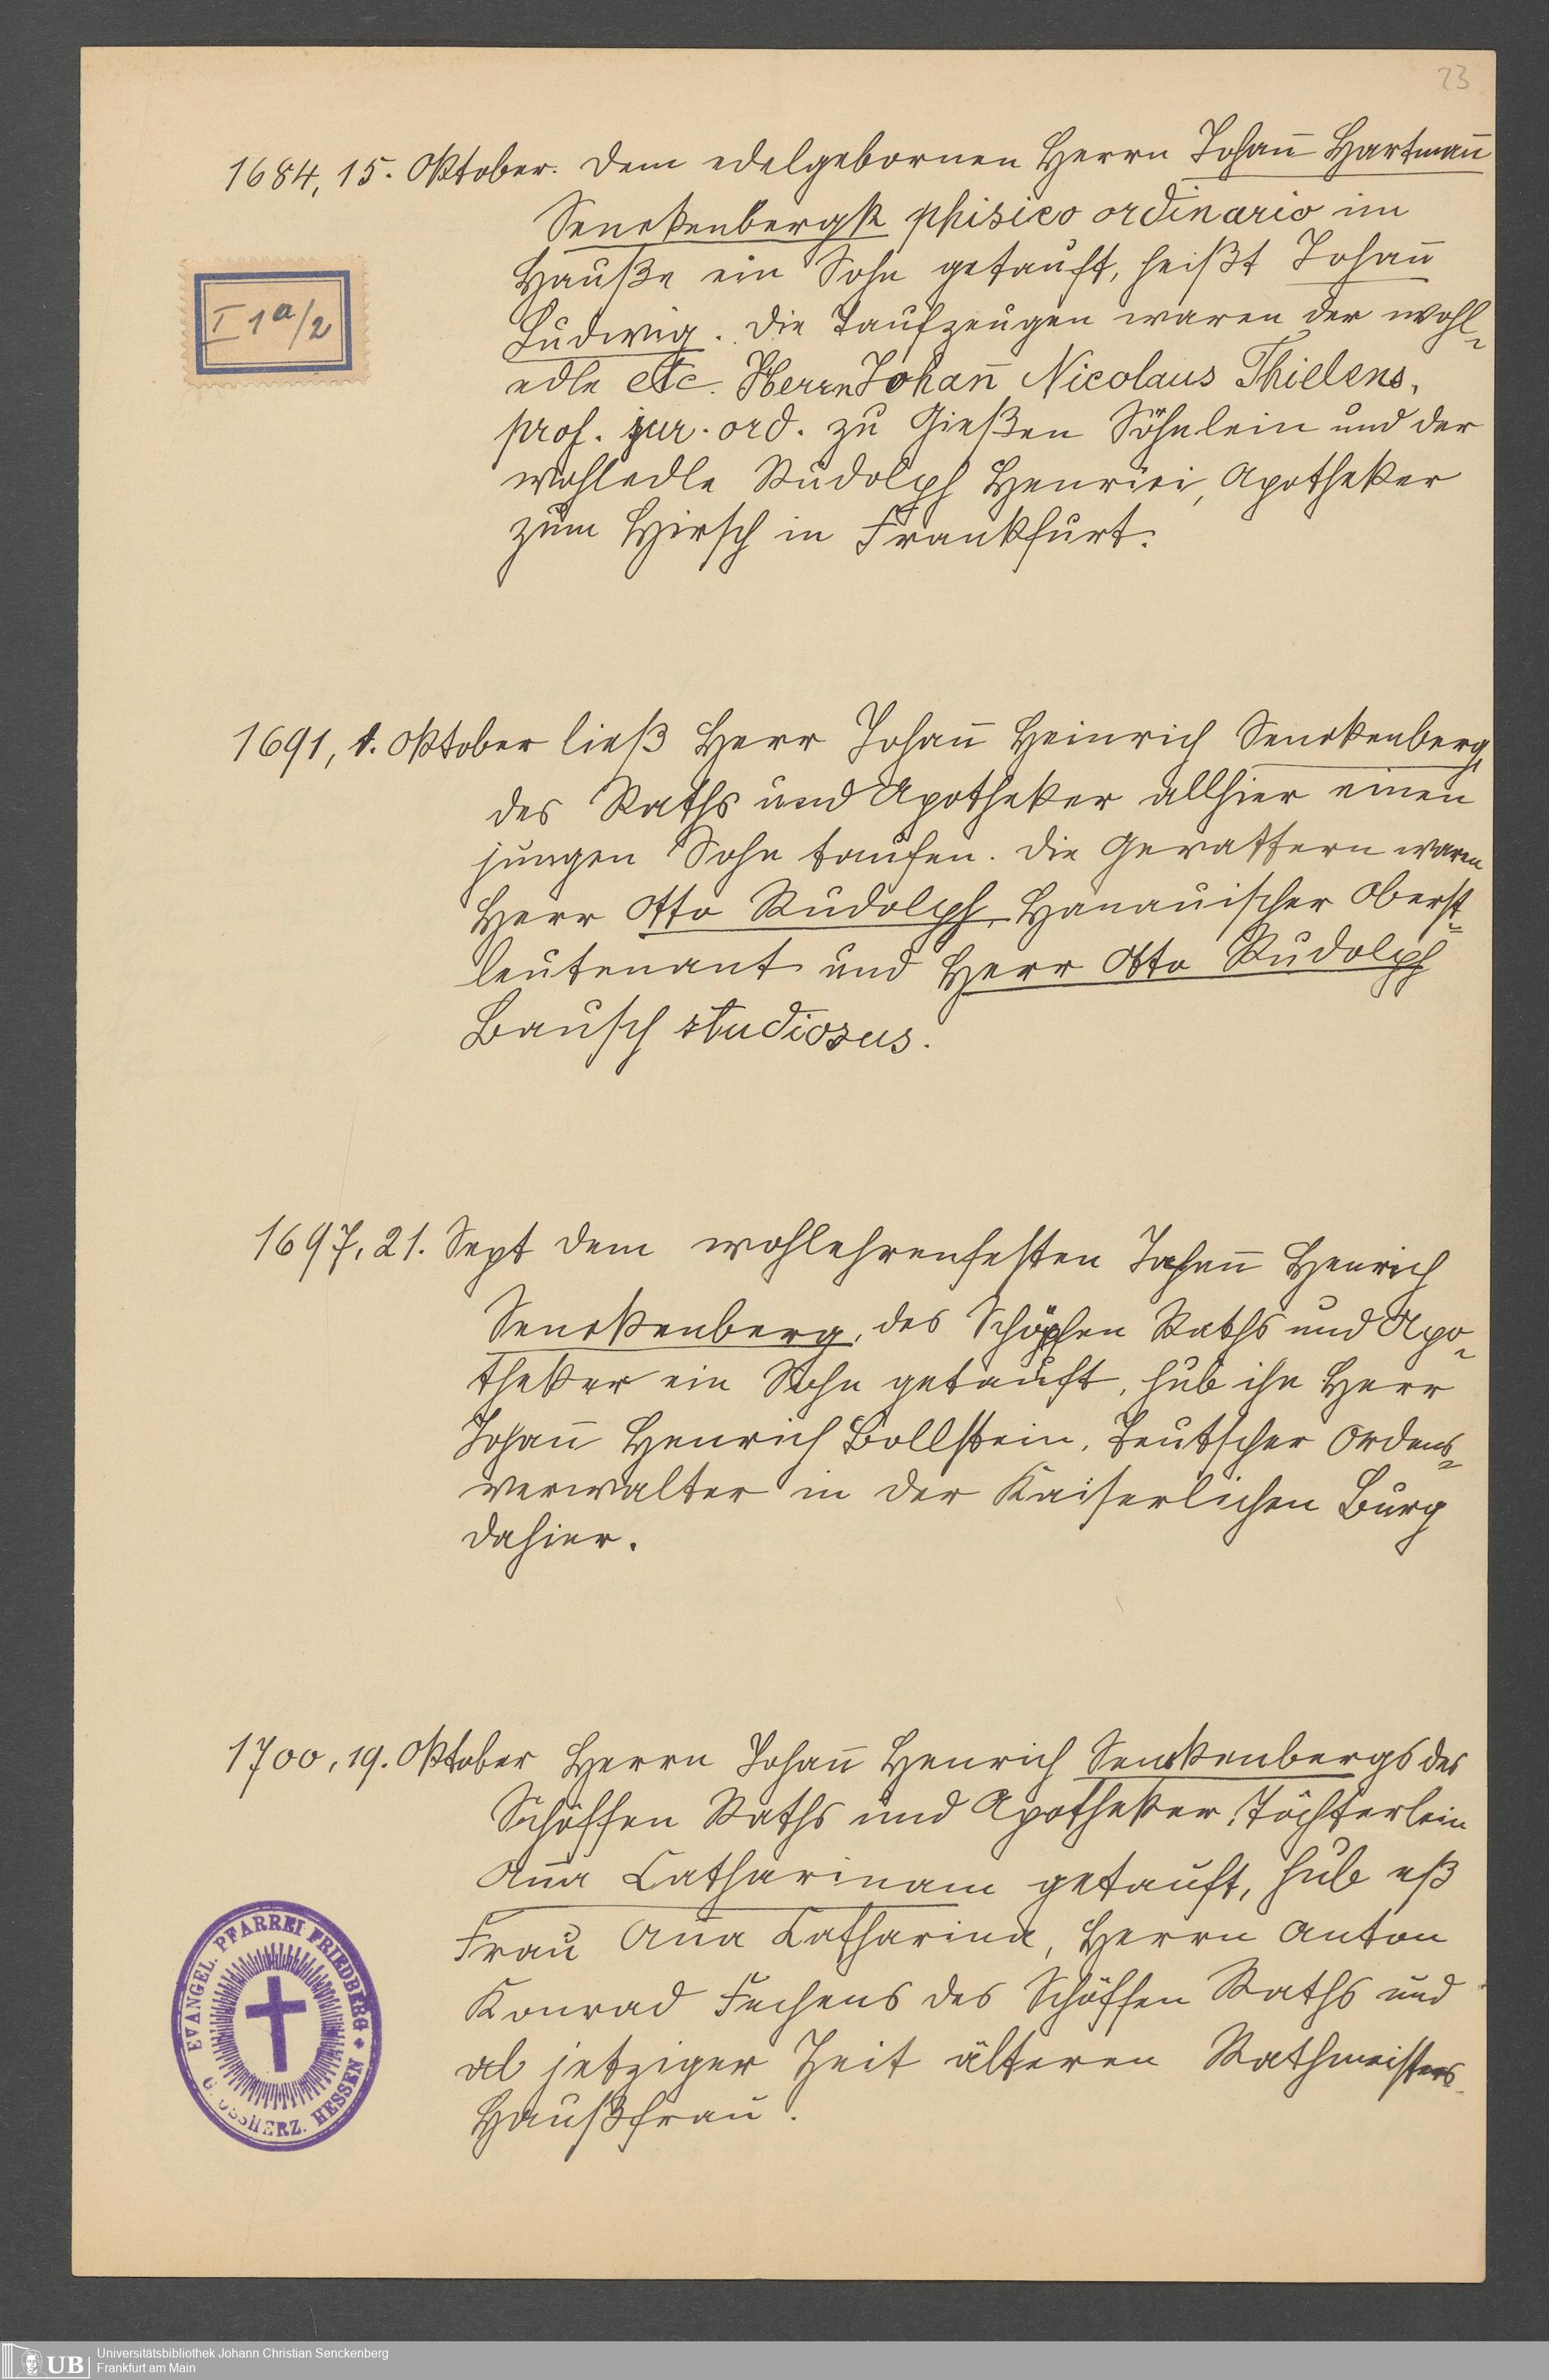 23
1684, 15. Oktober. Dem edelgebornen Herrn Johann Hartmann
Senckenbergk phisico ordinario im
Hauße ein Sohn getauft, heißt Johann
Ludwig. Die Taufzeugen waren der wohl-
edle etc. Herrn Johann Nicolaus Thielens,
prof. jur. ord. zu Gießen Söhnlein und der
wohledle Rudolph Henrici, Apotheker
zum Hirsch in Frankfurt.
I 1a/2
1691, 1. Oktober ließ Herr Johann Heinrich Senckenberg,
des Raths und Apotheker allhier einen
jungen Sohn taufen. Die Gevattern waren
Herr Otto Rudolph, Hanauischer Oberst-
leutenant und Herr Otto Rudolph
Bausch studiosus.
1697, 21. Sept dem wohlehrenfesten Johann Henrich
Senckenberg, des Schöpfen Raths und Apo-
theker ein Sohn getauft, hub ihn Herr
Johann Henrich Bollstein, Teutscher Ordens-
verwalter in der Kaiserlichen Burg
dahier.
1700, 19. Oktober Herrn Johann Henrich Senckenbergs des
Schöffen Raths und Apotheker, Töchterlein
Anna Catharinam getauft, hub eß
Frau Anna Catharina, Herrn Anton
Konrad Fuchens des Schöffen Raths und
ab jetziger Zeit älteren Rathmeisters
Haußfrau.
EVANGEL. PFARREI FRIEDBERG
GROSSHERZ. HESSEN
UB
Universitätsbibliothek Johann Christian Senckenberg
Frankfurt am Main